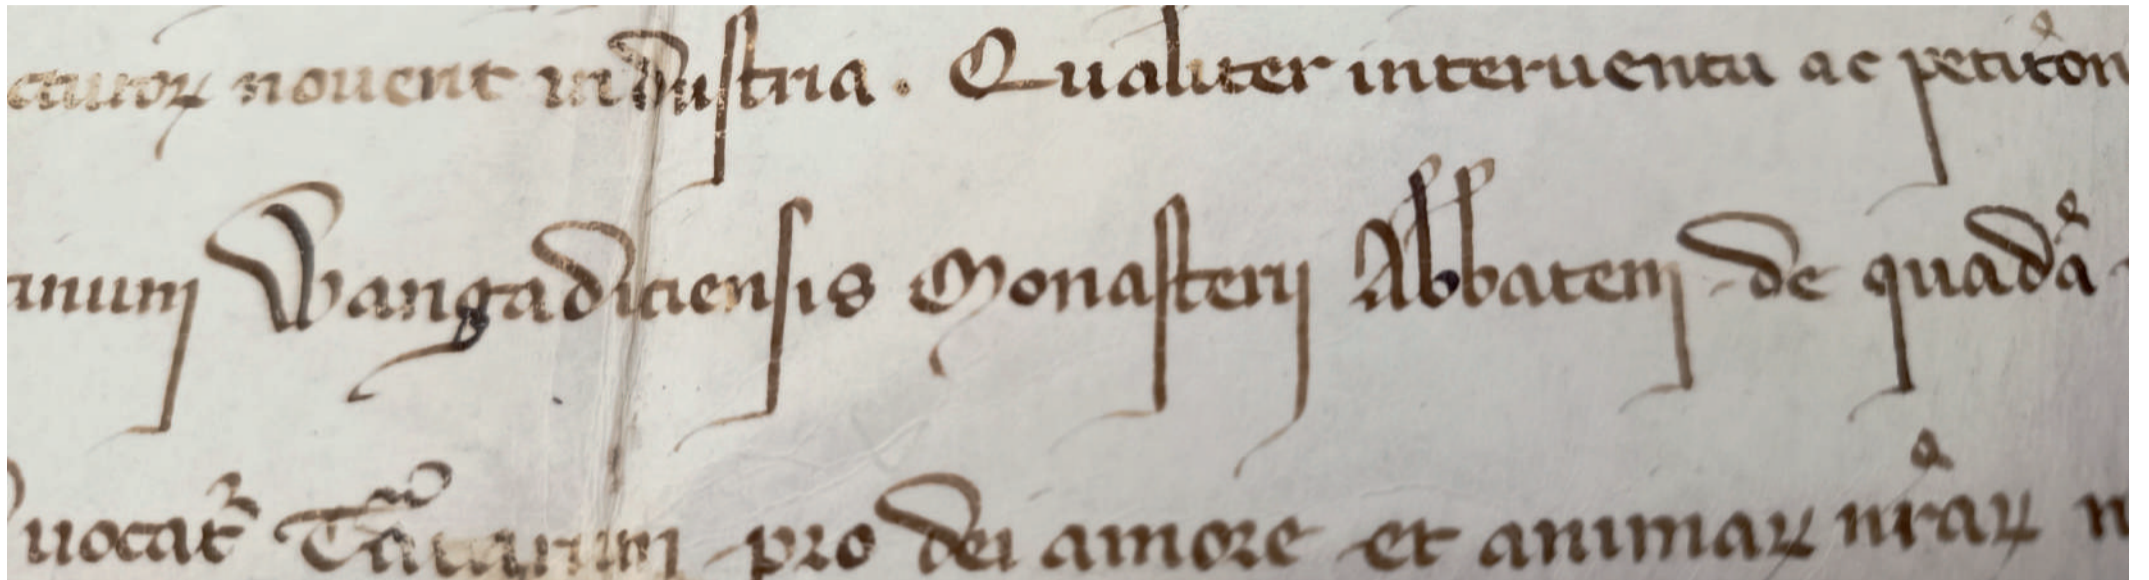 cturoꝝ nouerit industria. Qualiter interuentu ac petic̃on
anum Wangadiciensis Monasterij Abbatem de quadã
uocat᷑ pro dei amore et animaꝝ nr̃aꝝ